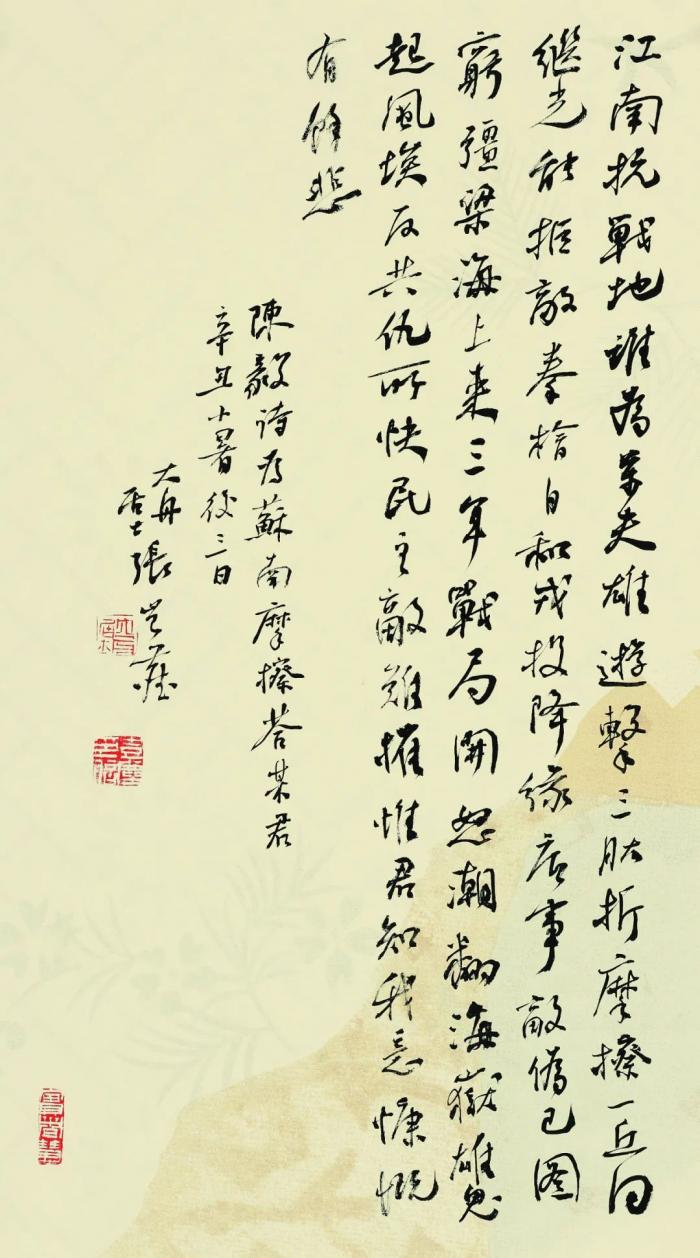 江南抗戰地誰為萬夫雄遊擊三肱折摩擦一丘同
繼光能拒敵秦檜自和戎投降緣底事敵偽已圖
窮彊梁海上來三年戰局開怒潮翻海嶽雄鬼
起風埃反共仇所快民主敵難摧惟君知我意慷慨
有餘悲
陳毅詩為蘇南摩擦答某君
辛丑小暑後三日
大舟
居士張